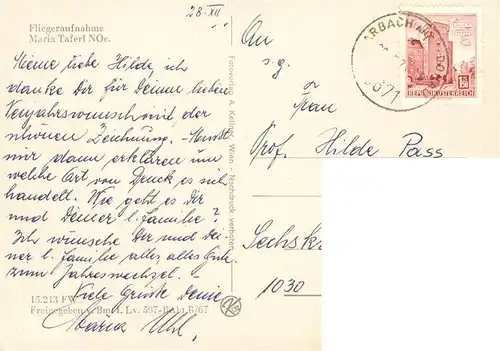 28.XII
Fliegeraufnahme
Maria Taferl NOe.
Meine liebe Hilde ich
danke Dir für Deinen lieben
Neujahrswunsch mit der
schönen Zeichnung. Musst
mir dann erklären um
welche Art von Druck es sich
handelt. Wie geht es Dir
und Deiner l. Familie?
Ich wünsche Dir und Dei-
ner l. Familie alles, alles Gute
zum Jahreswechsel. -
Viele Grüsse Deine
Maria
15.213 FW
Freigegeben v. Bmf. l. Lv. 597-RAbt.B/67
Fotoverlag A. Kellner, Wien. - Nachdruck verboten
An
s.g.
Frau
Prof. Hilde Pass
Sechskr
1030
ARBACH
3671
REPUBLIK ÖSTERREICH